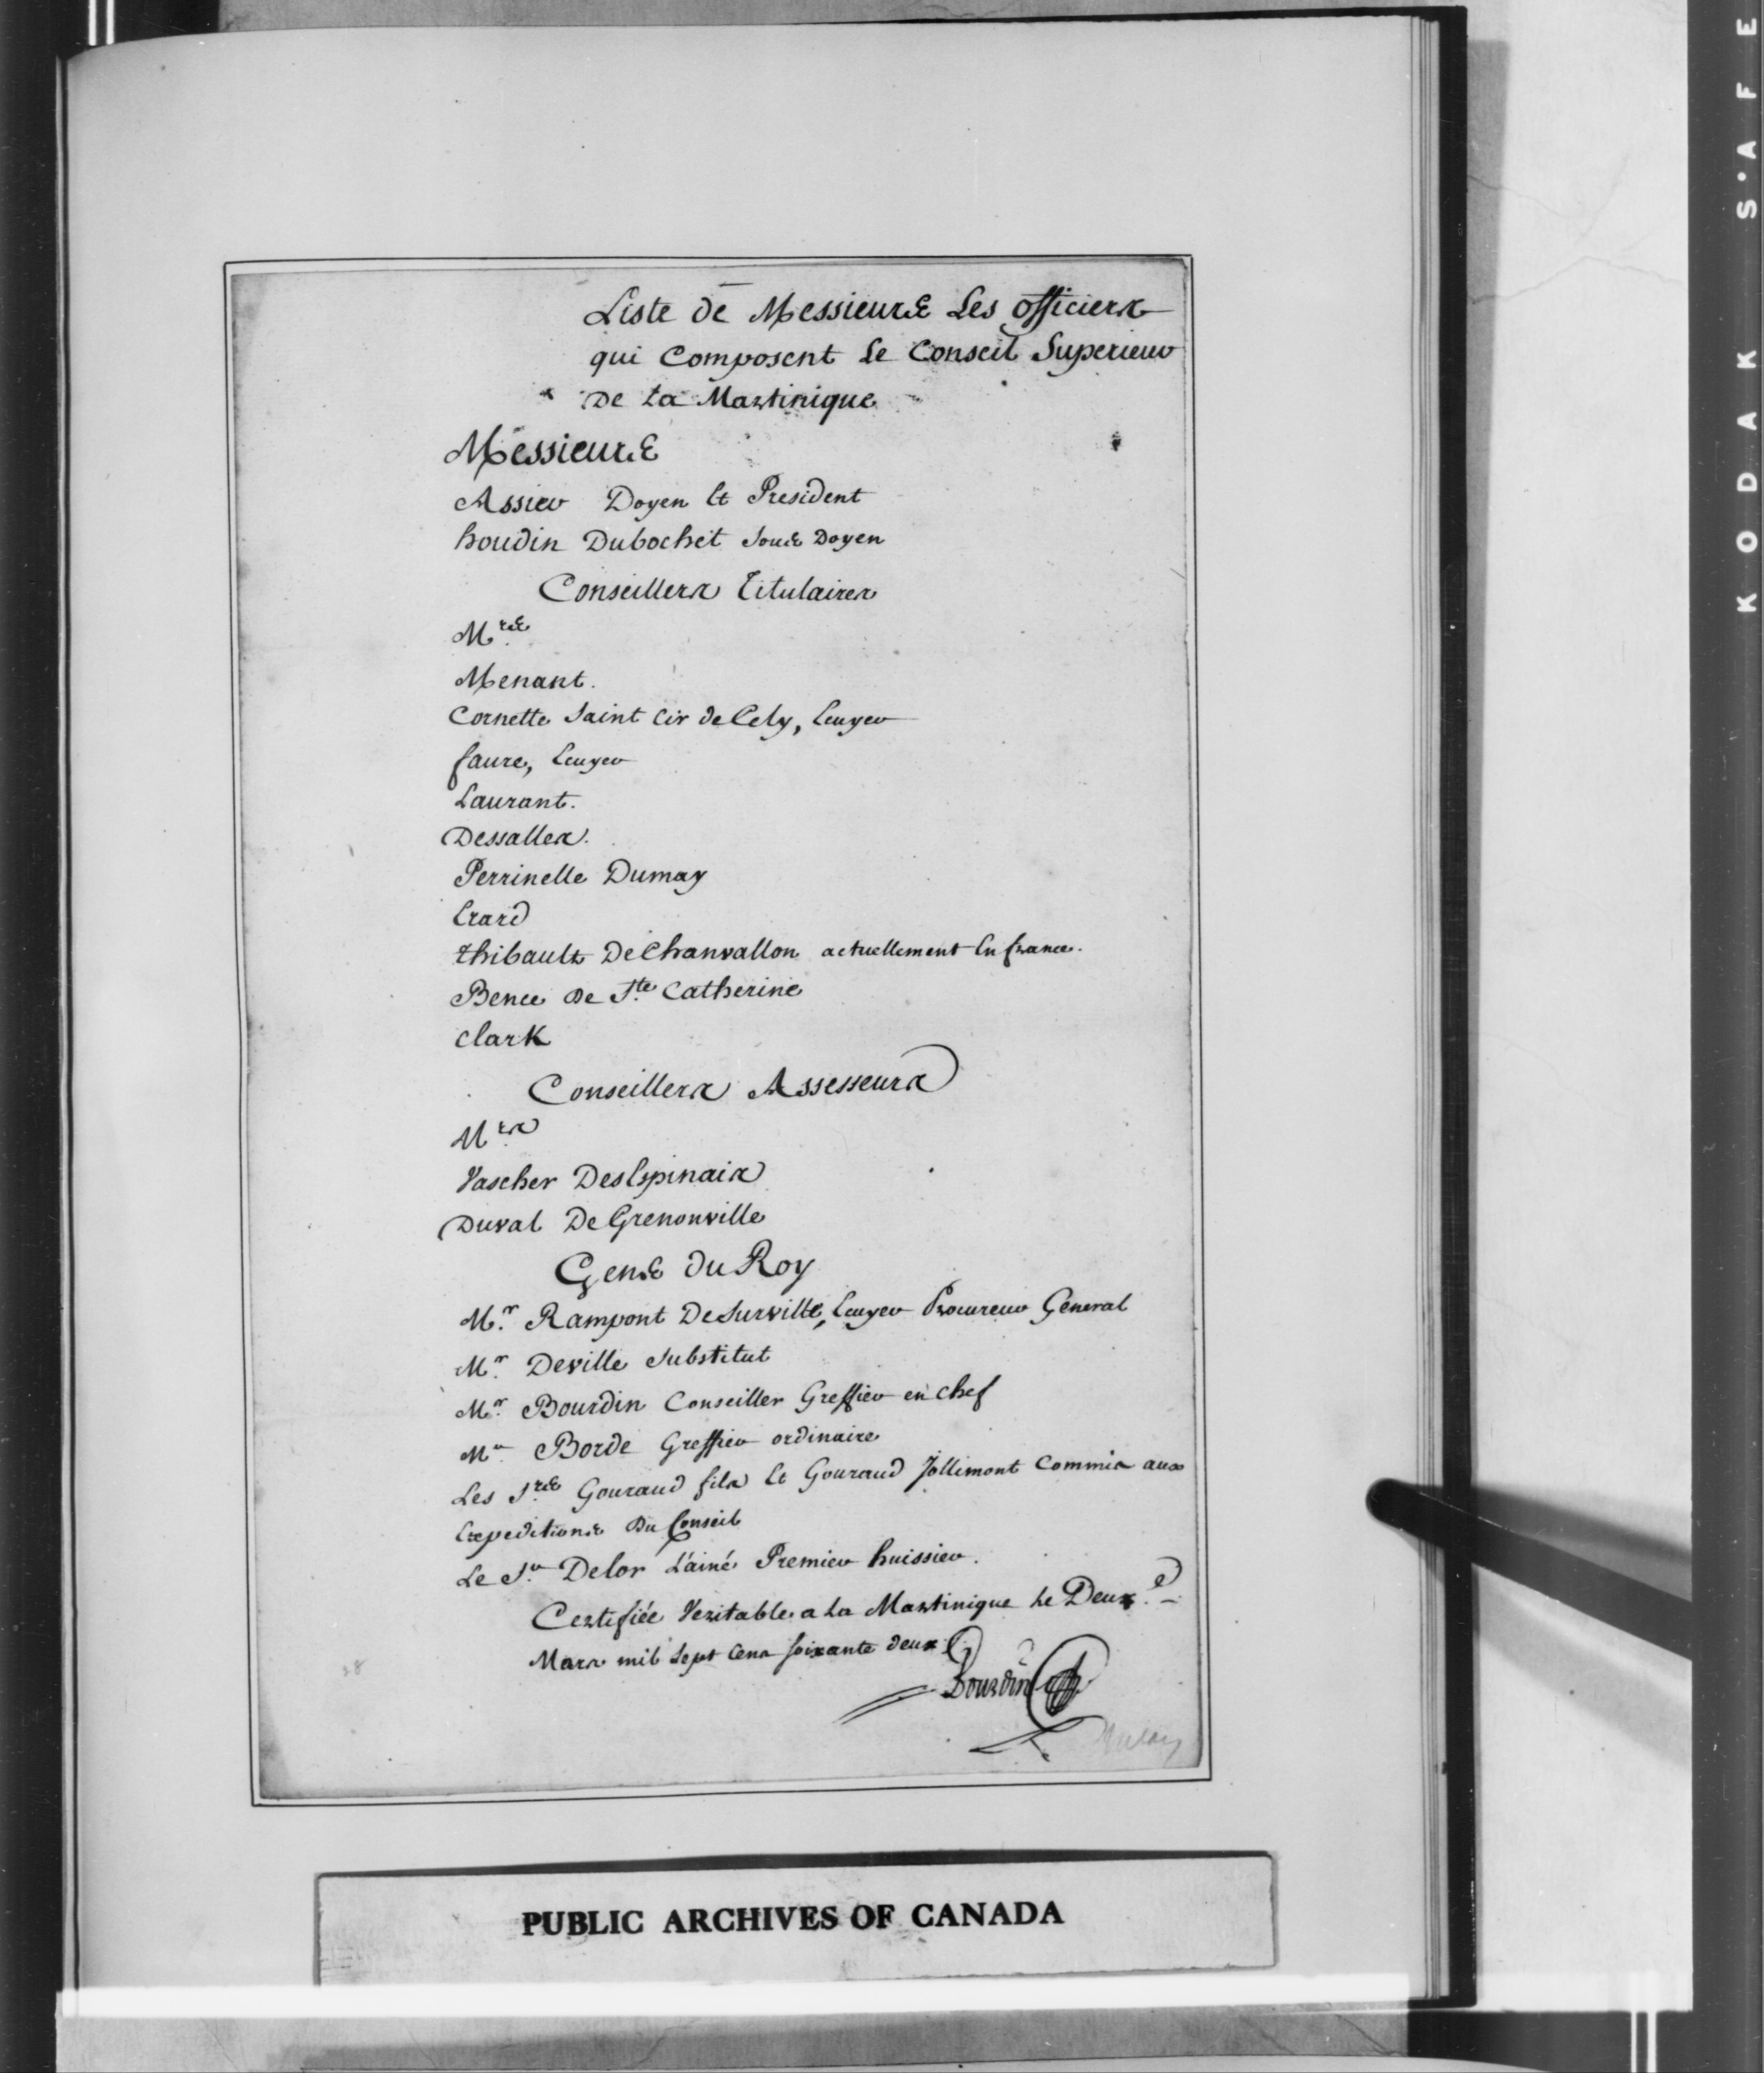 Liste de Messieurs Les officiers
qui Composent Le Conseil Superieur
De La Martinique
Messieurs
Assier Doyen Et President
houdin Dubochet Sous Doyen
Conseillers Titulaires
Mrs.
Menant.
Cornette Saint Cir de Cely, Ecuyer
faure, Ecuyer
Laurant.
Dessalles.
Perrinelle Dumay
Erard
thibault De Chanvallon actuellement En france.
Bence De Ste. Catherine
Clark
Conseillers Assesseurs
Mrs.
Vascher Des Espinais
Duval De Grenonville
Gens du Roy
Mr. Rampont De Surville, Ecuyer Procureur General
Mr. Deville Substitut
Mr. Bourdin Conseiller Greffier en chef
Mr. Borde Greffier ordinaire
Les Srs. Gouraud fils Et Gouraud Jollimont Commis aux
Expeditions Du Conseil
Le Sr. Delor L'ainé Premier huissier.
Certifiée Veritable a La Martinique Le Deuxe.
Mars mil Sept Cens soixante deux
Bourdin
PUBLIC ARCHIVES OF CANADA
KODAK S'AFE